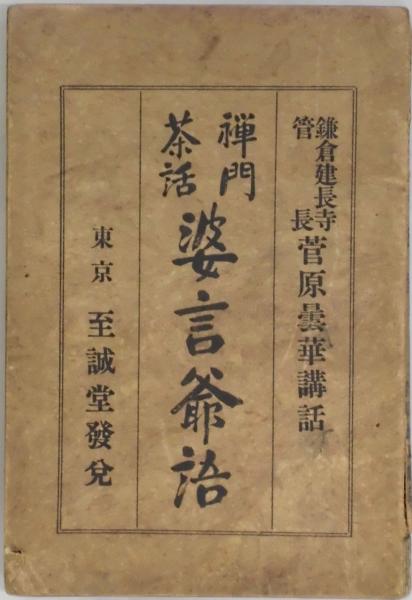 鎌倉建長寺
管長 菅原曇華講話
禅門
茶話
婆言爺語
東京 至誠堂發兌